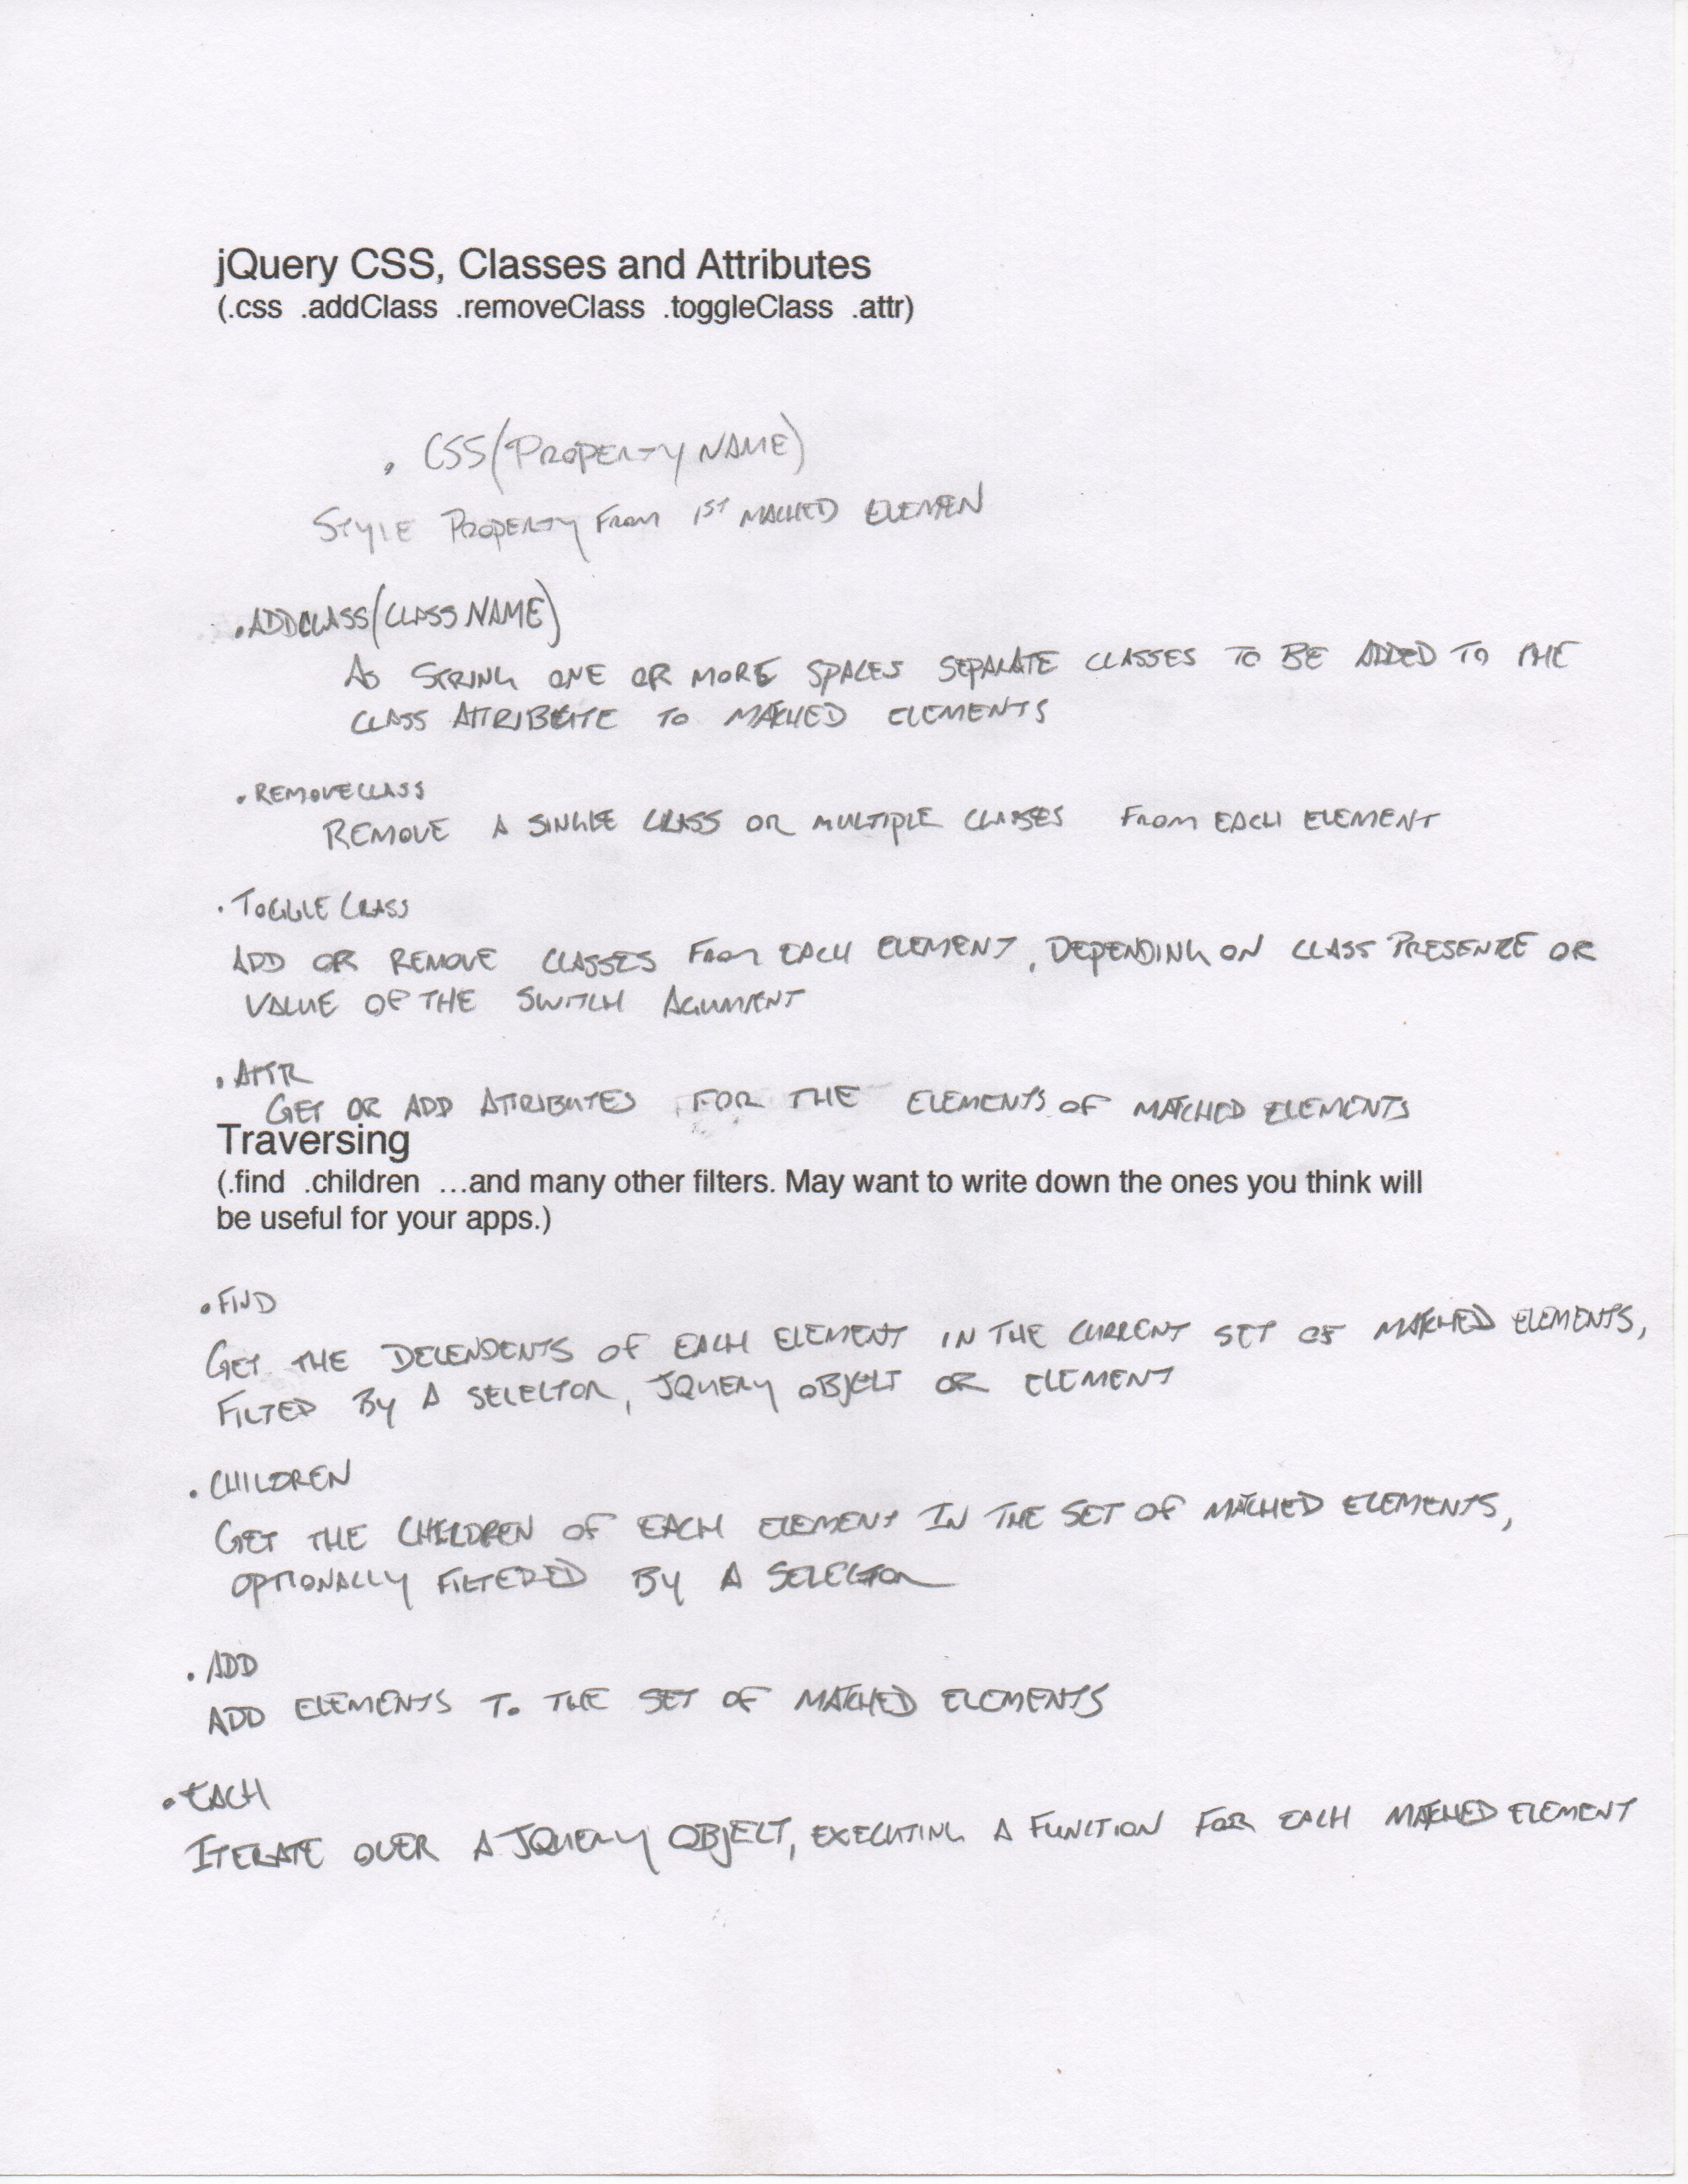 jQuery CSS, Classes and Attributes
(.css .addClass .removeClass .toggleClass .attr)
. CSS(PROPERTY NAME)
STYLE PROPERTY FROM 1ST MACHED ELEMEN
.ADDCLASS(CLASS NAME)
AS STRING ONE OR MORE SPACES SEPARATE CLASSES TO BE ADDED TO THE
CLASS ATTRIBUTE TO MATCHED ELEMENTS
.REMOVECLASS
REMOVE A SINGLE CLASS OR MULTIPLE CLASSES FROM EACH ELEMENT
.TOGGLE CLASS
ADD OR REMOVE CLASSES FROM EACH ELEMENT, DEPENDING ON CLASS PRESENCE OR
VALUE OF THE SWITCH AGUMENT
.ATTR
GET OR ADD ATTRIBUTES FOR THE ELEMENTS OF MATCHED ELEMENTS
Traversing
(.find .children ...and many other filters. May want to write down the ones you think will
be useful for your apps.)
.FIND
GET THE DECENDENTS OF EACH ELEMENT IN THE CURRENT SET OF MATCHED ELEMENTS,
FILTED BY A SELECTOR, JQUERY OBJECT OR ELEMENT
.CHILDREN
GET THE CHILDREN OF EACH ELEMENT IN THE SET OF MATCHED ELEMENTS,
OPTIONALLY FILTERED BY A SELECTOR
.ADD
ADD ELEMENTS TO THE SET OF MATCHED ELEMENTS
.EACH
ITERATE OVER A JQUERY OBJECT, EXECUTING A FUNCTION FOR EACH MATCHED ELEMENT